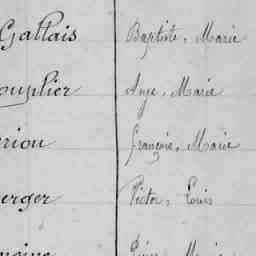 Gallais Baptiste, Marie
ouplier Ange, Marie
eriou François, Marie
erger Victor, Louis